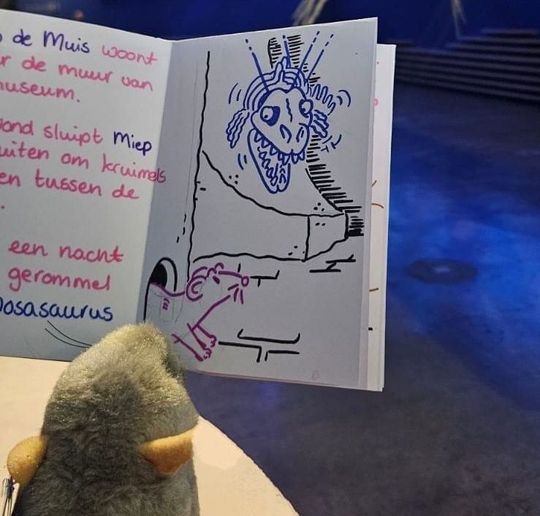 de Muis woont
de muur van
museum.
sluipt Miep
buiten om kruimels
en tussen de
een nacht
gerommel
Mosasaurus